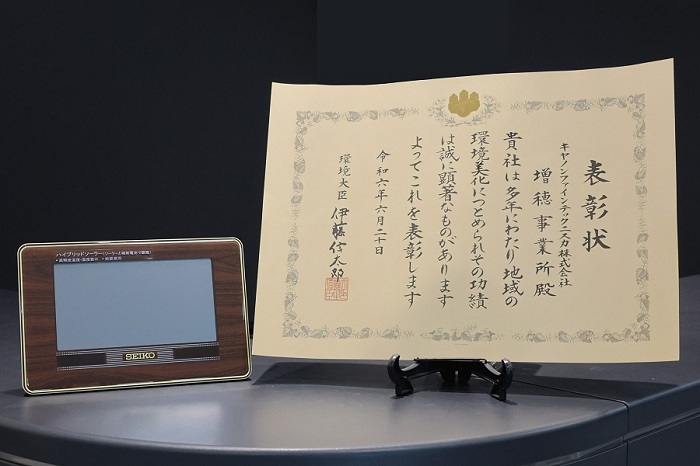 表彰状
キヤノンファインテックニスカ株式会社
増穂事業所殿
貴社は多年にわたり地域の
環境美化につとめられその功績
は誠に顕著なものがあります
よってこれを表彰します
令和六年六月二十日
環境大臣 伊藤信太郎
ハイブリッドソーラー
SEIKO